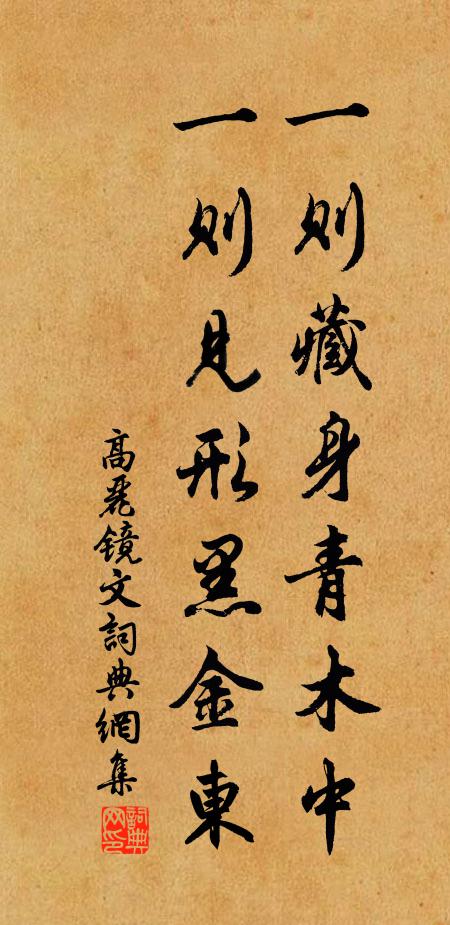 一則藏身青木中
一則見形黑金東
高麗鏡文詞典網集
詞典网印